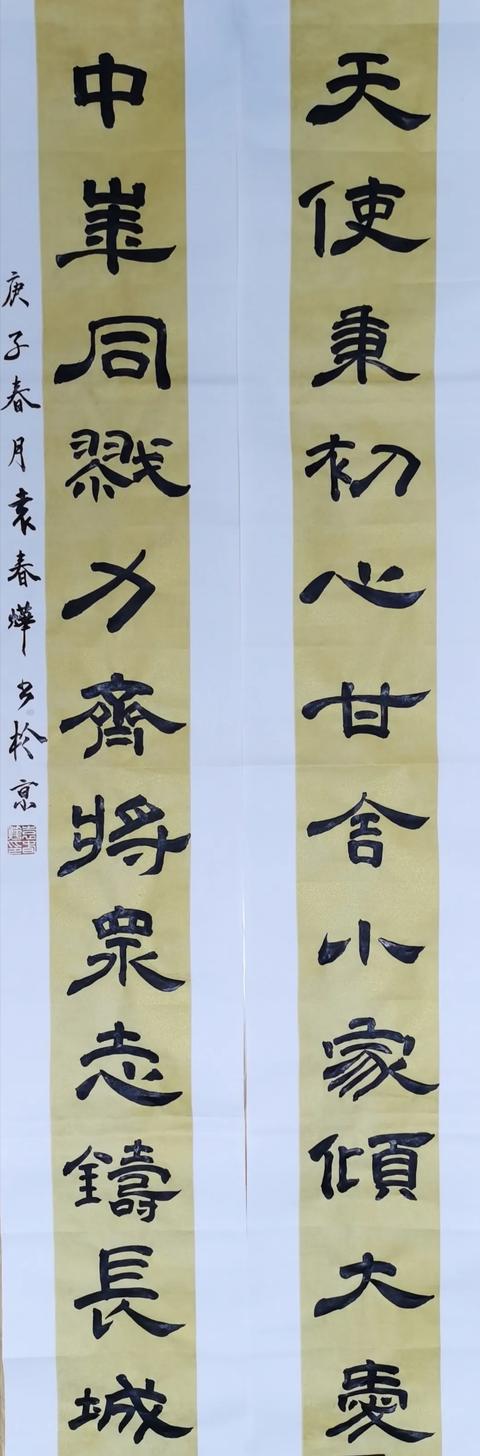 天使秉初心甘舍小家傾大愛
中崋同戮力齊將眾志鑄長城
庚子春月袁春燁书於京